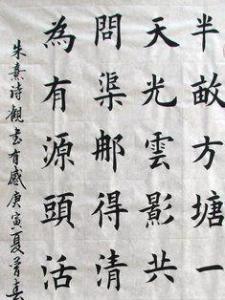 半畝方塘一
天光雲影共
問渠那得清
為有源頭活
朱熹诗觀书有感庚寅夏